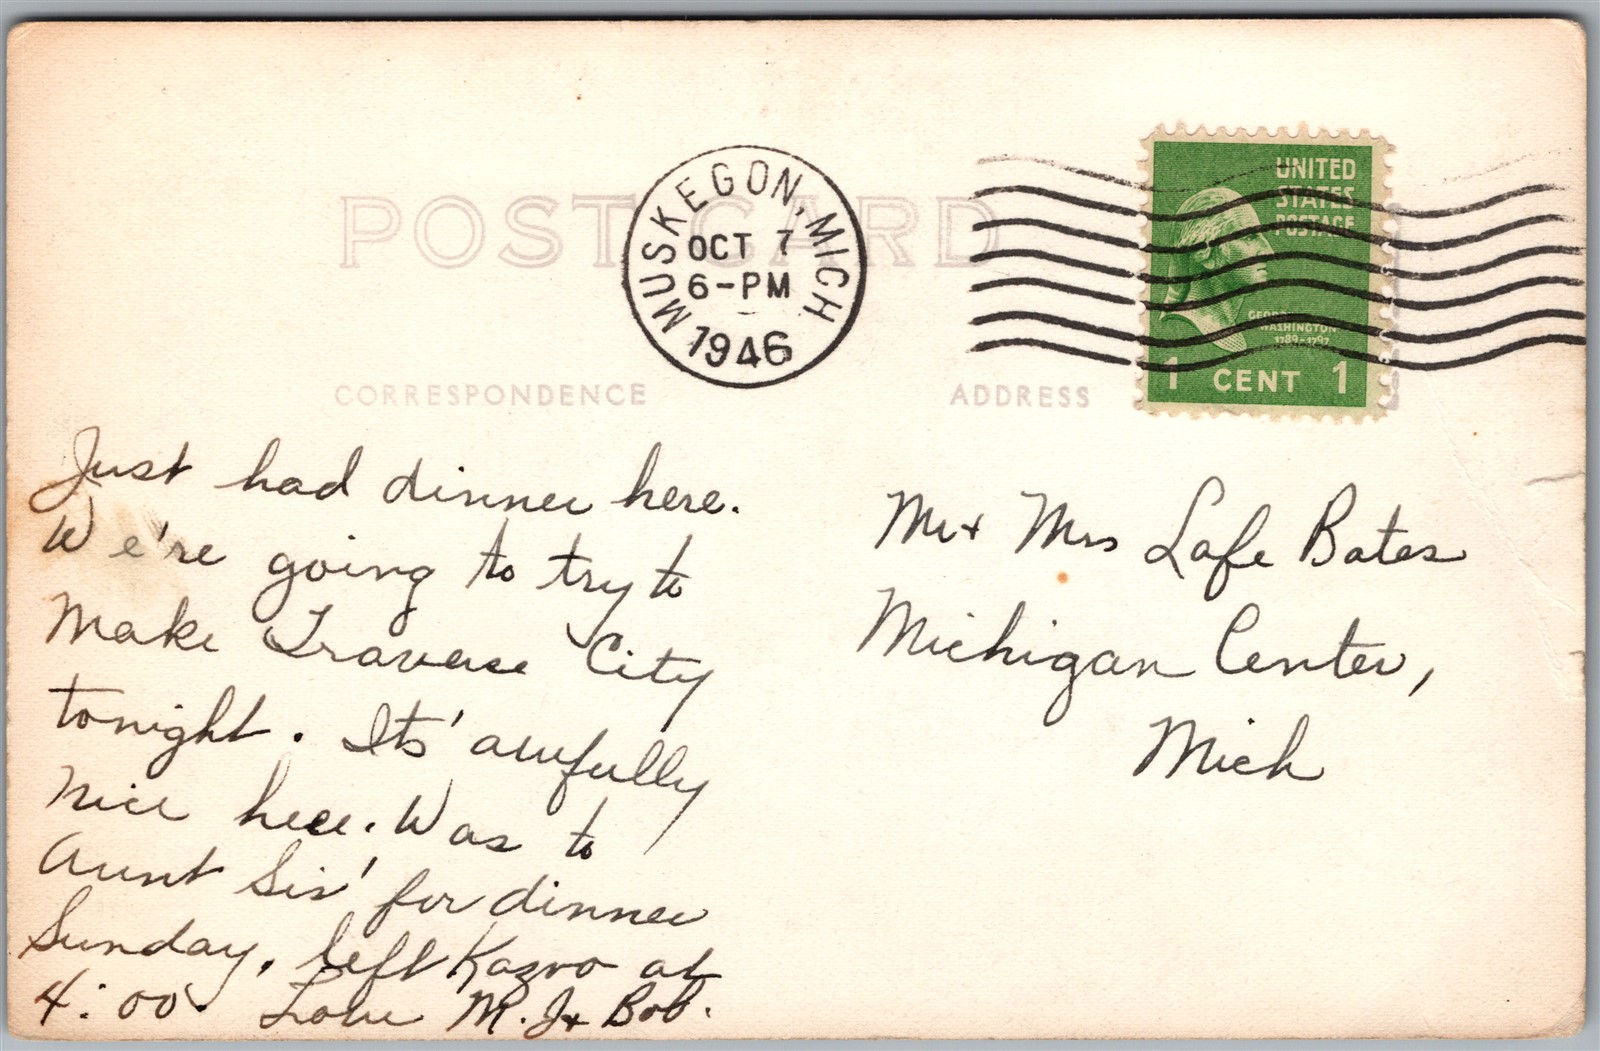 POST CARD
MUSKEGON, MICH
OCT 7
6-PM
1946
UNITED
STATES
POSTAGE
GEORGE
WASHINGTON
1789-1797
1 CENT 1
CORRESPONDENCE
ADDRESS
Just had dinner here.
We're going to try to
Make Traverse City
tonight. Its' awfully
nice here. Was to
Aunt Sis' for dinner
Sunday, left Kazoo at
4:00. Love M. J + Bob.
Mr + Mrs Lafe Bates
Michigan Center,
Mich